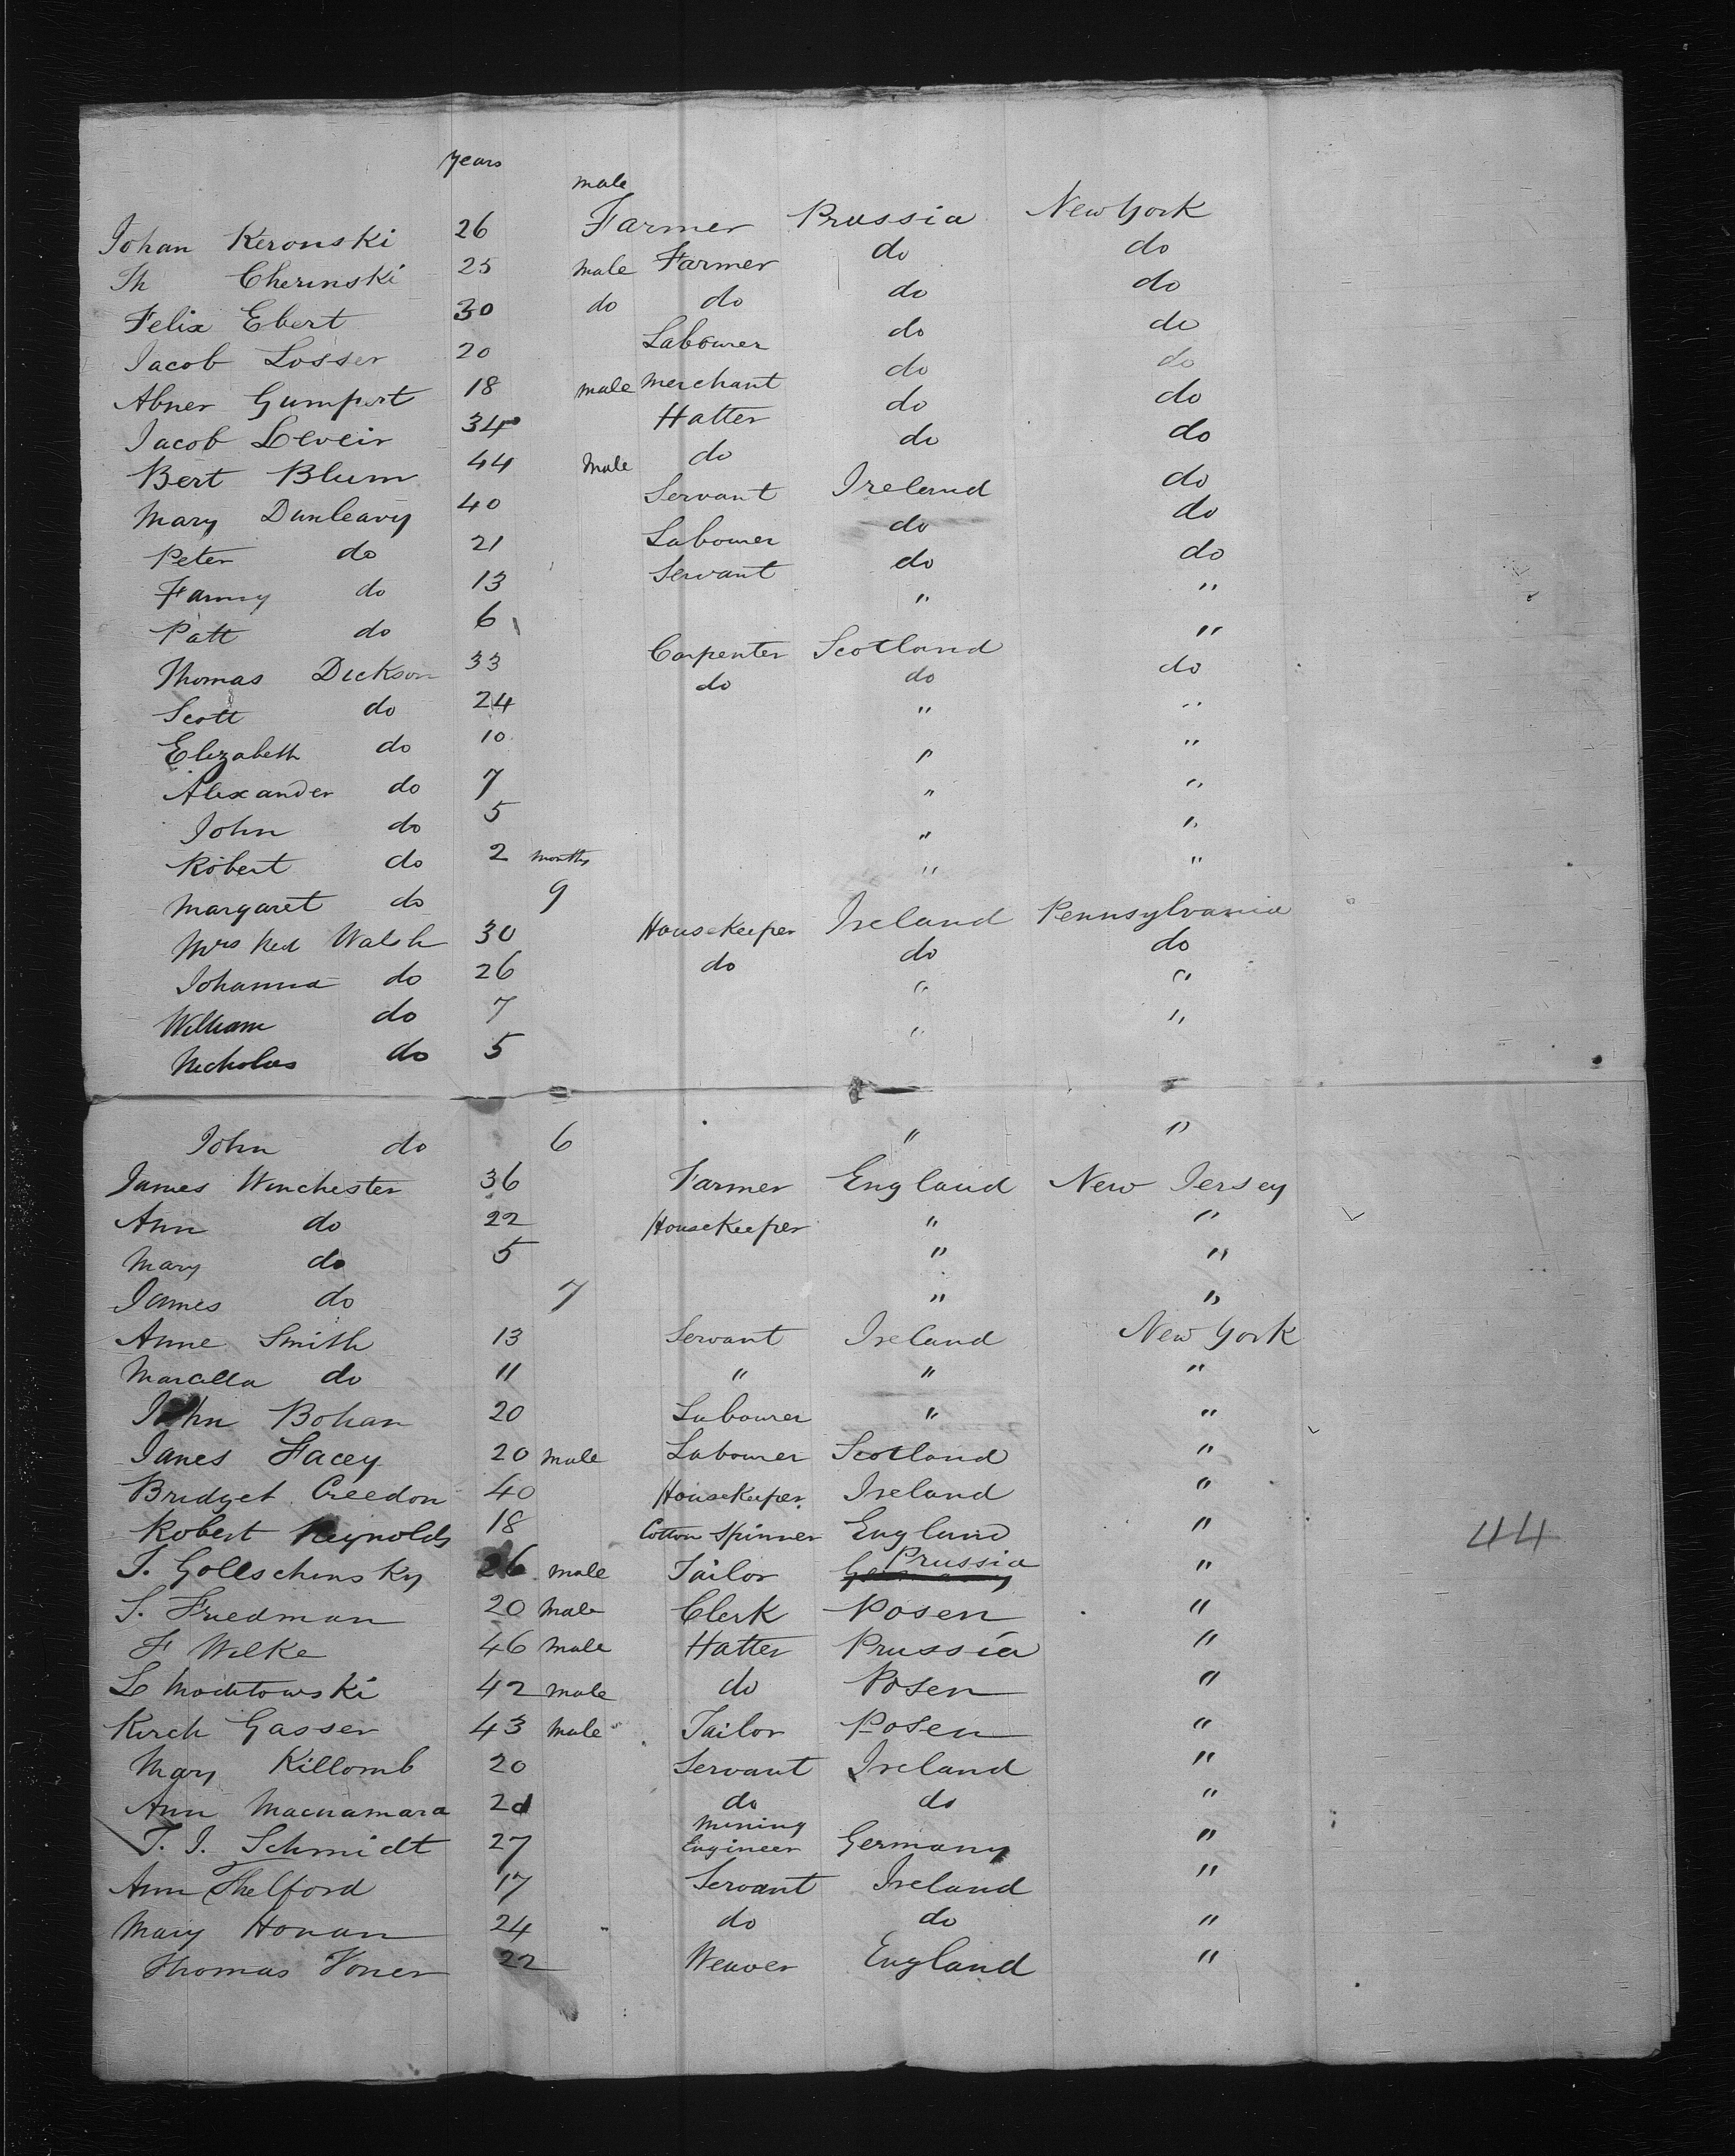 years
male
Johan Keronski 26 Farmer Prussia New York
Th Cherinski 25 male Farmer do do
Felix Ebert 30 do do do do
Jacob Losser 20 Labourer do do
Abner Gumpert 18 male merchant do do
Jacob Leveir 34 Hatter do do
Bert Blum 44 male do do do
Mary Dunleavy 40 Servant Ireland do
Peter do 21 Labourer do do
Fanny do 13 Servant do do
Patt do 6 " "
Thomas Dickson 33 Carpenter Scotland "
Scott do 24 do do do
Elizabeth do 10 " "
Alexander do 7 " "
John do 5 " "
Robert do 2 months " "
Margaret do 9 " "
Mrs Ned Walsh 30 Housekeeper Ireland Pennsylvania
Johanna do 26 do do do
William do 7 " "
Nicholas do 5 " "
John do 6 " "
James Winchester 36 Farmer England New Jersey
Ann do 22 Housekeeper " "
Mary do 5 " "
James do 7 " "
Anne Smith 13 Servant Ireland New York
Marcella do 11 " " "
John Bohan 20 Labourer " "
James Facey 20 male Labourer Scotland "
Bridget Creedon 40 Housekeeper Ireland "
Robert Reynolds 18 Cotton Spinner England "
44
T. Gollschinsky 26 male Tailor Prussia "
S. Friedman 20 male Clerk Posen "
F Wilke 46 male Hatter Prussia "
L Mochtowski 42 male do Posen "
Kirch Gasser 43 male Tailor Posen "
Mary Killomb 20 Servant Ireland "
Ann Macnamara do do "
T. J. Schmidt 27 Mining Engineer Germany "
Ann Shelford 17 Servant Ireland "
Mary Honan 24 do do "
Thomas Voner 22 Weaver England "